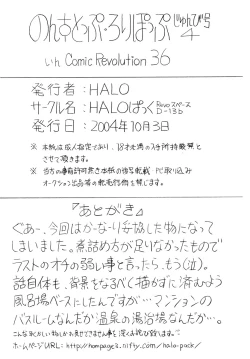 のんすとっぷ・ろりぽっぷ
いん Comic Revolution 36
発行者：HALO
サークル名：HALOぱっく Revoスペース D-13b
発行日：2004年10月3日
※ 本紙は成人指定であり、18才未満の
とさせて頂きます。
※ 当方の事前許可無き本紙の複写転載・PC取り込み
オークション出品等の転売行為を禁じます。
『あとがき』
ぐあ～、今回はかーなり妥協した物となって
しまいました。煮詰め方が足りなかったもので
ラストのオチの弱い事と言ったら、もう(泣)。
話自体も、背景をなるべく描かずに済むよう
風呂場ベースにしたんですが…マンションの
バスルームなんだか温泉の湯浴場なんだか…。
ホームページURL：http://homepage3.nifty.com/halo-pack/